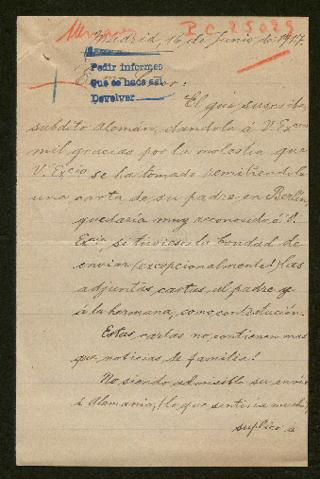 P C 25029
Madrid, 16 de Junio de 1917.
Pedir informes
Que se hace así
Devolver
Señor:
El que suscribe,
subdito alemán, dandola á V. Excia
mil gracias por la molestia que
V. Excia se ha tomado remitiendole
una carta de su padre en Berlin,
quedaria muy reconocido á V.
Excia, si tuviese la bondad de
enviar (excepcionalmente!) las
adjuntas cartas, al padre y
á la hermana, como contestación.
Estas cartas no contienen mas
que noticias de familia!
No siendo admisible su envio
á Alemania, (lo que sentiria mucho)
suplico a